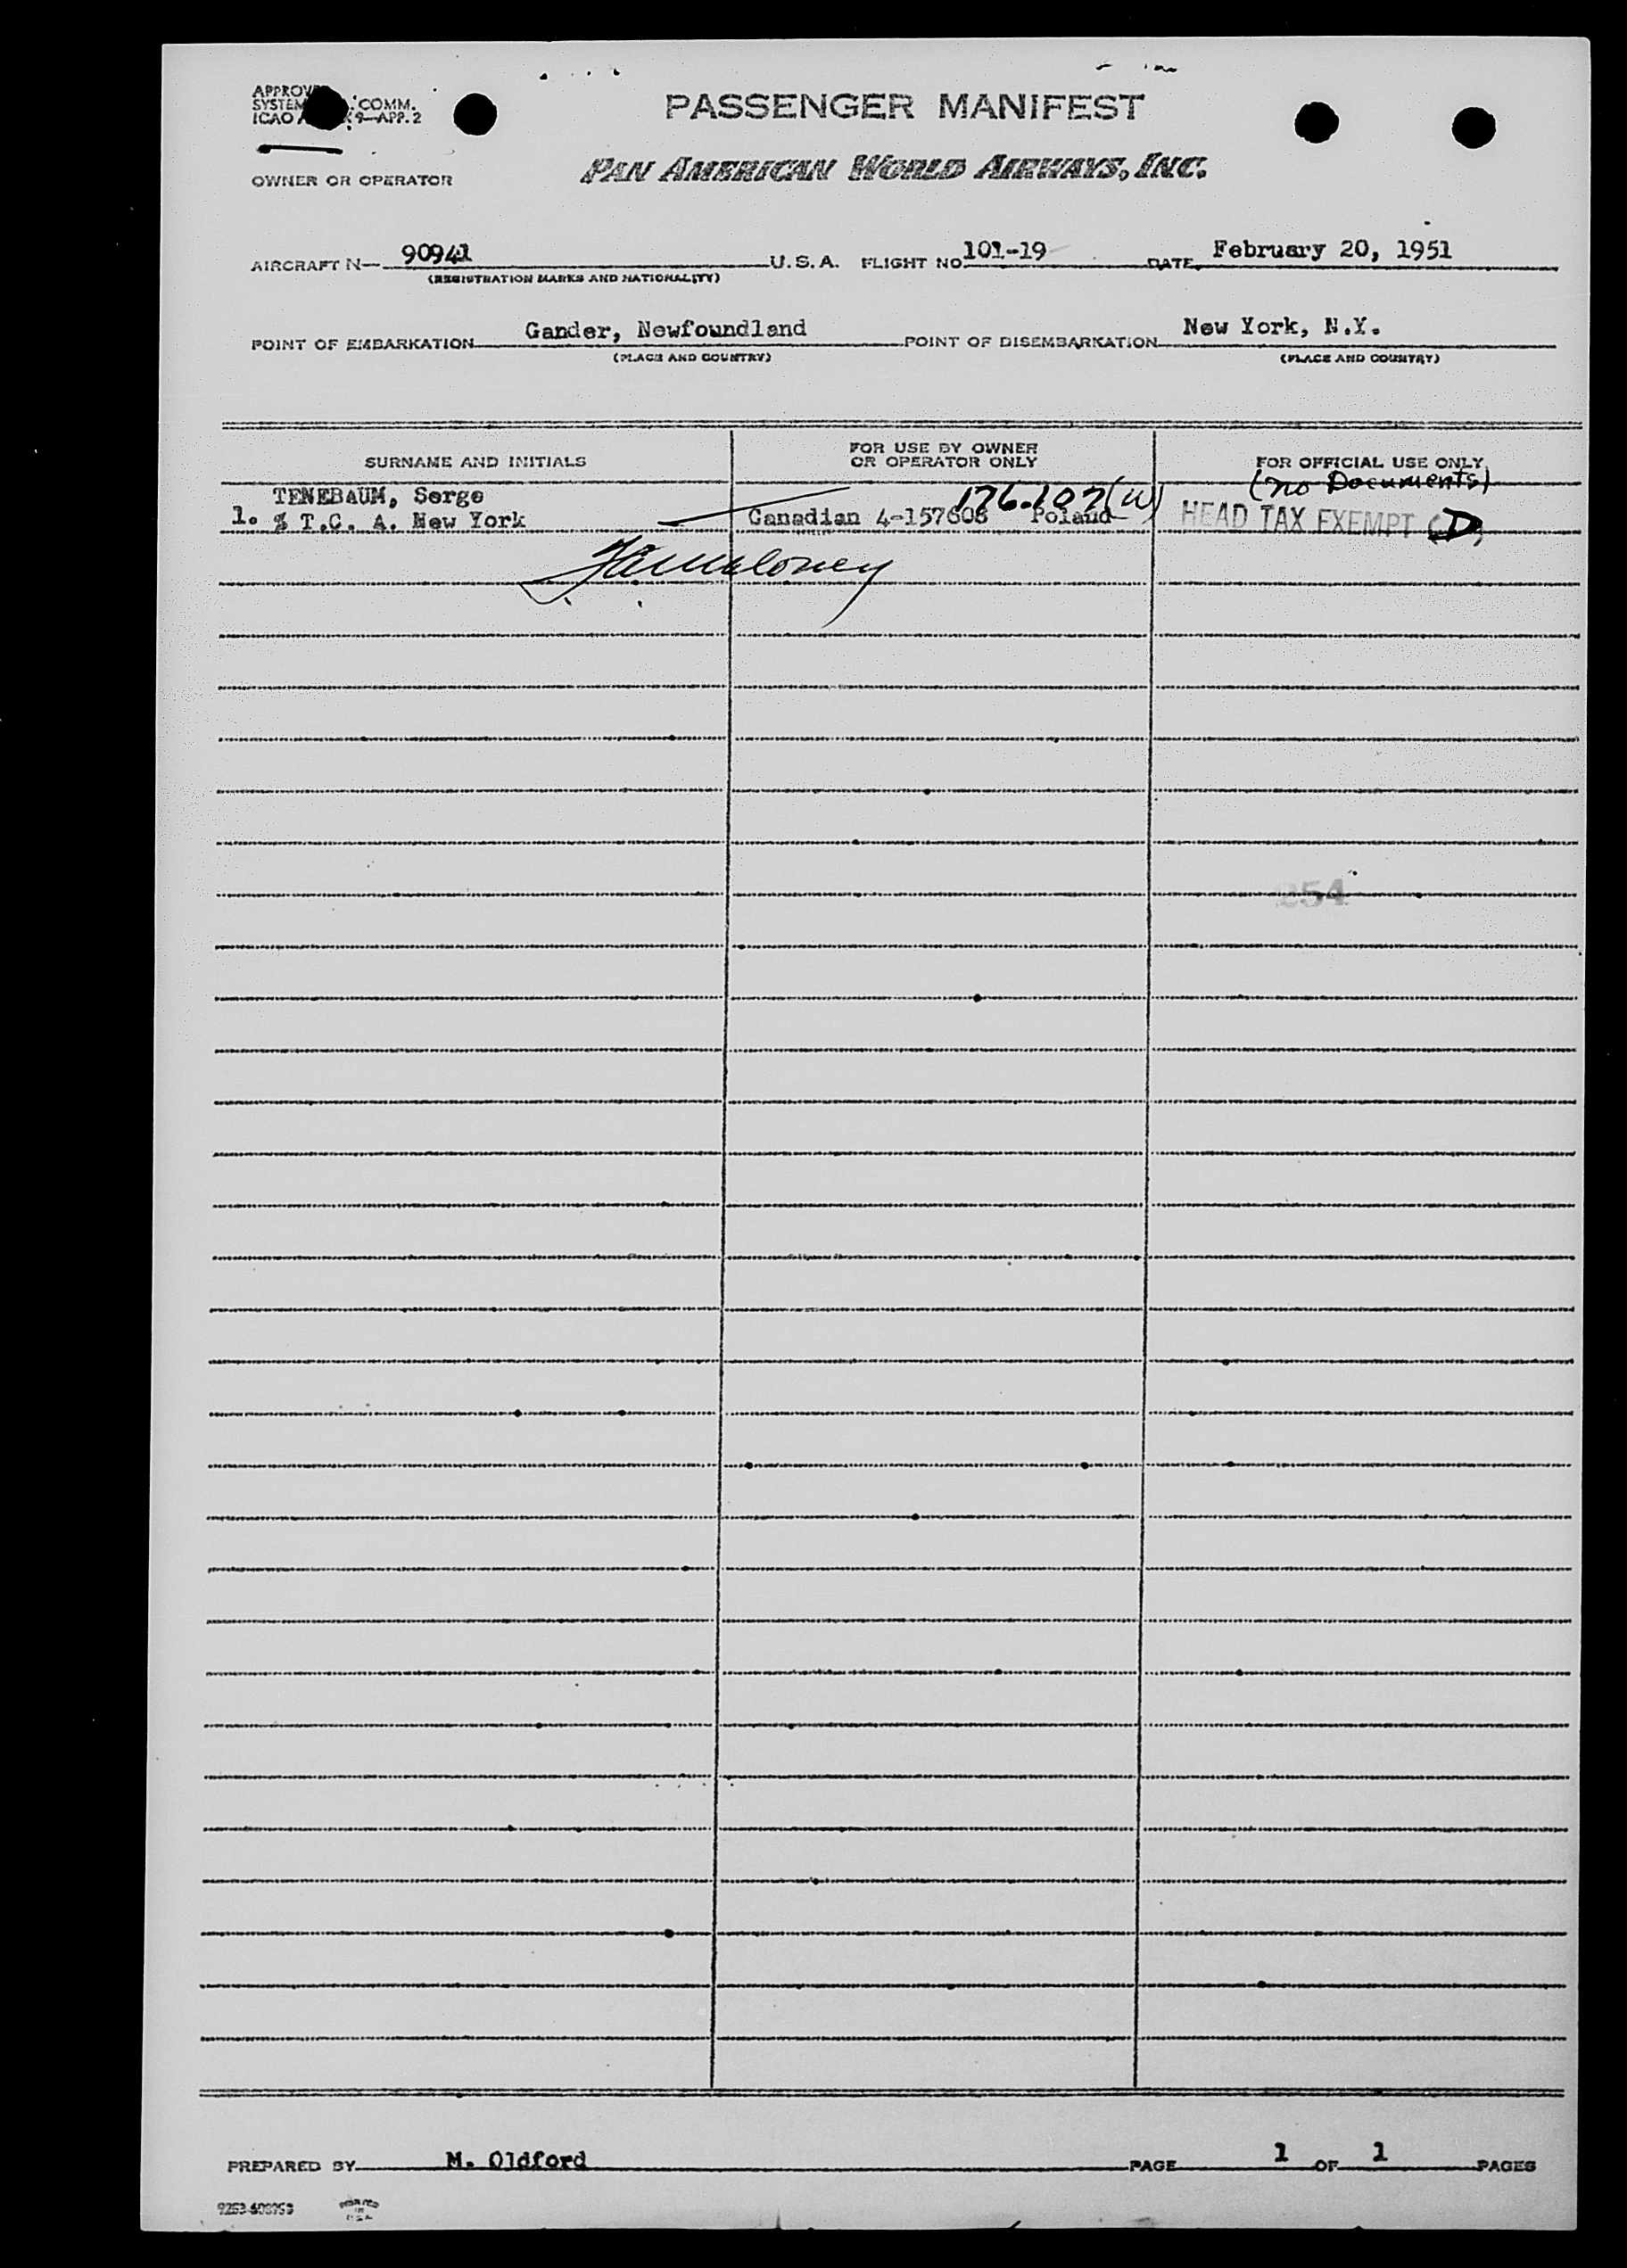 PASSENGER MANIFEST
SYSTEM COMM.
ICAO 9-APP. 2
OWNER OR OPERATOR
PAN AMERICAN WORLD AIRWAYS, INC.
AIRCRAFT N— 90941 U.S.A. FLIGHT NO 101-19 DATE February 20, 1951
(REGISTRATION MARKS AND NATIONALITY)
POINT OF EMBARKATION Gander, Newfoundland POINT OF DISEMBARKATION New York, N.Y.
(PLACE AND COUNTRY) (PLACE AND COUNTRY)
SURNAME AND INITIALS FOR USE BY OWNER OR OPERATOR ONLY FOR OFFICIAL USE ONLY
TENEBAUM, Serge 176.107(W) (no Documents)
1. % T.C. A. New York Canadian 4-157608 Poland HEAD TAX EXEMPT (D)
254
PREPARED BY M. Oldford PAGE 1 OF 1 PAGES